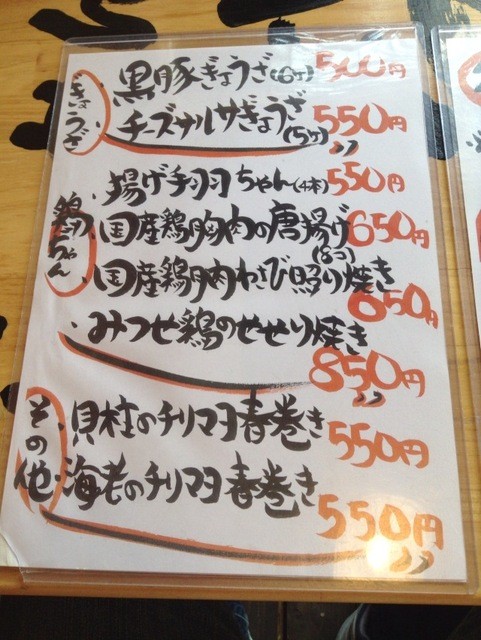 ぎょうざ
黒豚ぎょうざ(6ヶ) 500円
チーズナルサぎょうざ(5ヶ) 550円
鶏ちゃん
揚げ手羽ちゃん(4本) 550円
国産鶏胸肉の唐揚げ(8コ) 650円
国産鶏胸肉わさび照り焼き
650円
・みつせ鶏のせせり焼き
850円
その他
・貝柱のチリマヨ春巻き 550円
・海老のチリマヨ春巻き
550円